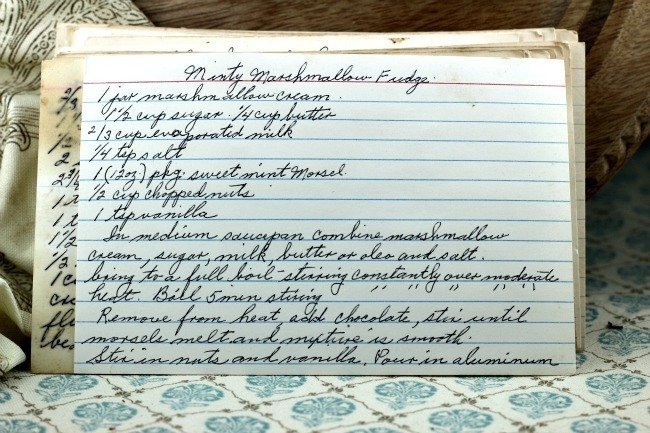 Minty Marshmallow Fudge.
1 jar marshmallow cream.
1 1/2 cup sugar. 1/4 cup butter
2/3 cup evaporated milk
1/4 tsp salt
1 (12oz) pkg. sweet mint Morsel.
1/2 cup chopped nuts
1 tsp vanilla
In medium saucepan combine marshmallow
cream, sugar, milk, butter or oleo and salt.
bring to a full boil - stiring constantly over moderate
heat. Boil 5 min stiring " " " " "
Remove from heat, add chocolate, stir until
morsels melt and mixture is smooth.
Stir in nuts and vanilla. Pour in aluminum